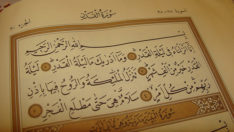 سُورَةُ الْقَدْرِ
بِسْمِ اللَّهِ الرَّحْمَٰنِ الرَّحِيمِ
إِنَّا أَنْزَلْنَاهُ فِي لَيْلَةِ الْقَدْرِ وَمَا أَدْرَاكَ مَا لَيْلَةُ الْقَدْرِ لَيْلَةُ
الْقَدْرِ خَيْرٌ مِنْ أَلْفِ شَهْرٍ تَنَزَّلُ الْمَلَٰئِكَةُ وَالرُّوحُ فِيهَا بِإِذْنِ
رَبِّهِمْ مِنْ كُلِّ أَمْرٍ سَلَامٌ هِيَ حَتَّىٰ مَطْلَعِ الْفَجْرِ